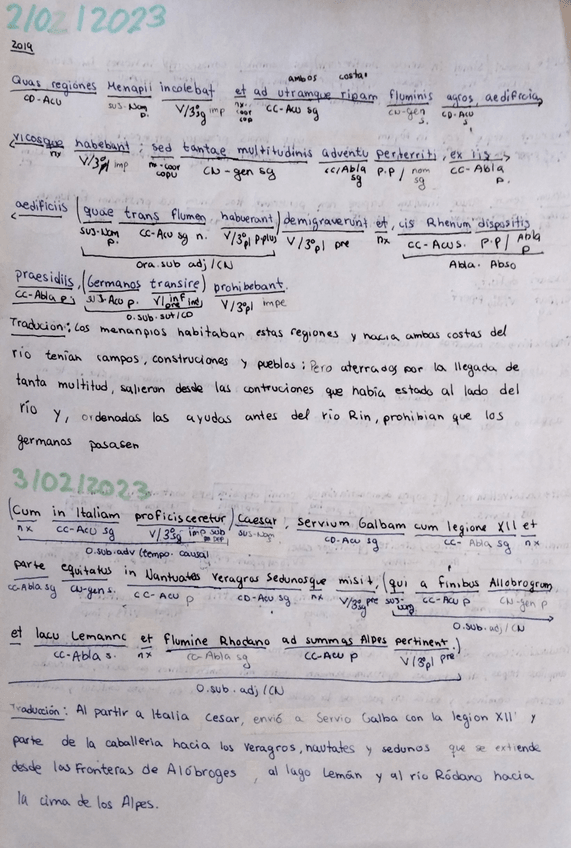 2/02/2023
2019
ambos costas
Quas regiones Menapii incolebat et ad utramque ripam fluminis agros, aedificia
CD-Acu sus-Nom p. V/3º sg imp nx-coor cop CC-Acu sg CN-gen s. CD-Acu
vicosque habebant; sed tantae multitudinis adventu perterriti, ex iis
nx V/3º pl imp nx-coor copu CN-gen sg CC/Abla sg P.P/nom sg CC-Abla p.
aedificiis (quae trans flumen habuerant) demigraverunt et, cis Rhenum dispositis
sus-Nom p. CC-Acu sg n. V/3º pl p.plus V/3º pl pre nx CC-Acu s. P.P/Abla p
Ora.sub adj/CN Abla. Abso
praesidiis, (Germanos transire) prohibebant.
CC-Abla p s Acu p. V/inf pre V/3º pl impe
O.sub.sut/CD
Tradución: Los menanpios habitaban estas regiones y hacia ambas costas del
río tenían campos, construciones y pueblos: Pero aterrados por la llegada de
tanta multitud, salieron desde las contruciones que había estado al lado del
río y, ordenadas las ayudas antes del río Rin, prohibian que los
germanos pasasen
3/02/2023
(Cum in Italiam proficisceretur) Caesar, Servium Galbam cum legione XII et
nx CC-Acu sg V/3º sg imp sub sus-Nom CD-Acu sg CC-Abla sg nx
O.sub.adv (tempo. causal)
parte equitatus in Nantuates Veragros Sedunosque misit, (qui a finibus Allobrogum
CC-Abla sg CN-gen s. CC-Acu p CD-Acu sg nx V/3º sg pre sus-Nom CC-Acu p CN-gen p
O.sub.adj/CN
et lacu Lemanno et flumine Rhodano ad summas Alpes pertinent.)
CC-Abla s. nx CC-Abla sg CC-Acu p V/3º pl pre
O.sub.adj/CN
Traducción: Al partir a Italia Cesar, envió a Servio Galba con la legion XII y
parte de la caballeria hacia los veragros, nautates y sedunos que se extiende
desde las Fronteras de Alóbroges, al lago Lemán y al río Ródano hacia
la cima de los Alpes.